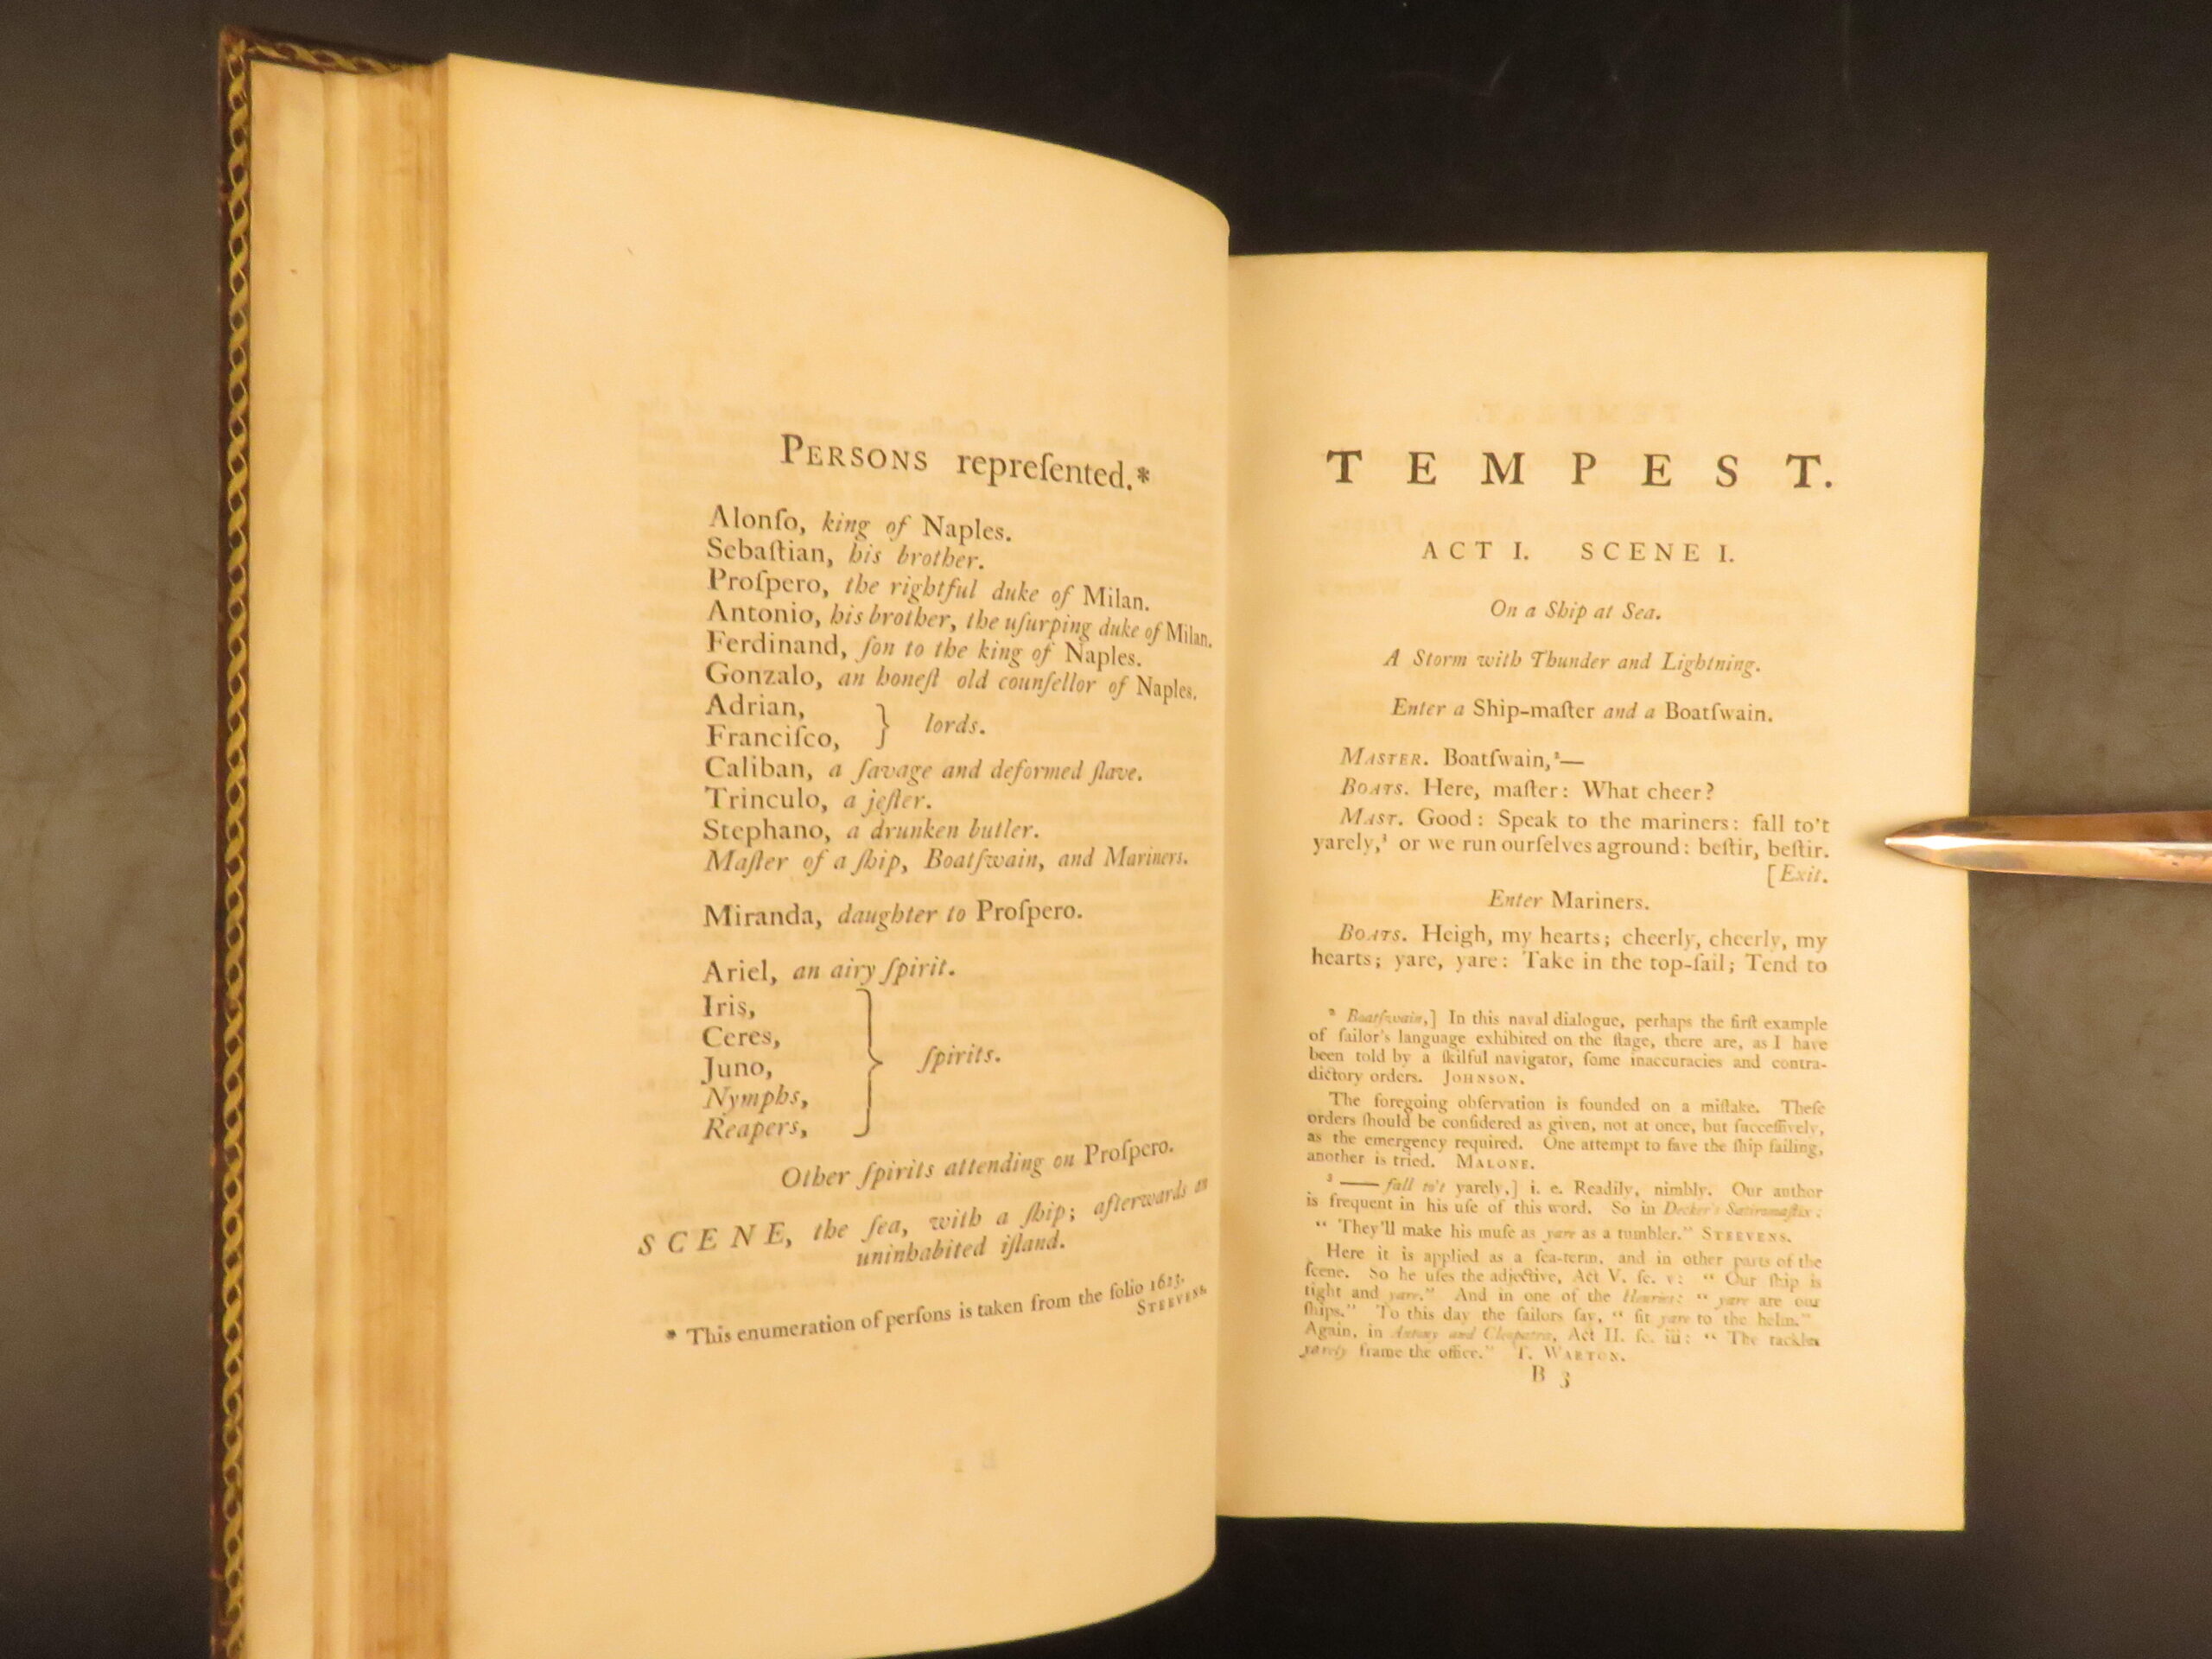 PERSONS repreſented.*
Alonſo, king of Naples.
Sebaſtian, his brother.
Proſpero, the rightful duke of Milan.
Antonio, his brother, the uſurping duke of Milan.
Ferdinand, ſon to the king of Naples.
Gonzalo, an honeſt old counſellor of Naples.
Adrian,
Franciſco, } lords.
Caliban, a ſavage and deformed ſlave.
Trinculo, a jeſter.
Stephano, a drunken butler.
Maſter of a ſhip, Boatſwain, and Mariners.
Miranda, daughter to Proſpero.
Ariel, an airy ſpirit.
Iris,
Ceres,
Juno, } ſpirits.
Nymphs,
Reapers,
Other ſpirits attending on Proſpero.
SCENE, the ſea, with a ſhip; afterwards an
uninhabited iſland.
* This enumeration of perſons is taken from the folio 1623.
STEEVENS.
TEMPEST.
ACT I. SCENE I.
On a Ship at Sea.
A Storm with Thunder and Lightning.
Enter a Ship-maſter and a Boatſwain.
MASTER. Boatſwain,²—
BOATS. Here, maſter: What cheer?
MAST. Good: Speak to the mariners: fall to't
yarely,³ or we run ourſelves aground: beſtir, beſtir.
[Exit.
Enter Mariners.
BOATS. Heigh, my hearts; cheerly, cheerly, my
hearts; yare, yare: Take in the top-ſail; Tend to
² Boatſwain,] In this naval dialogue, perhaps the firſt example
of ſailor's language exhibited on the ſtage, there are, as I have
been told by a ſkilful navigator, ſome inaccuracies and contra-
dictory orders. JOHNSON.
The foregoing obſervation is founded on a miſtake. Theſe
orders ſhould be conſidered as given, not at once, but ſucceſſively,
as the emergency required. One attempt to ſave the ſhip failing,
another is tried. MALONE.
³ —— fall to't yarely,] i. e. Readily, nimbly. Our author
is frequent in his uſe of this word. So in Decker's Satiromaſtix:
“ They'll make his muſe as yare as a tumbler.” STEEVENS.
Here it is applied as a ſea-term, and in other parts of the
ſcene. So he uſes the adjective, Act V. ſc. v: “ Our ſhip is
tight and yare.” And in one of the Henries: “ yare are our
ſhips.” To this day the ſailors ſay, “ ſit yare to the helm.”
Again, in Antony and Cleopatra, Act II. ſc. iii: “ The tackles
yarely frame the office.” T. WARTON.
B 3